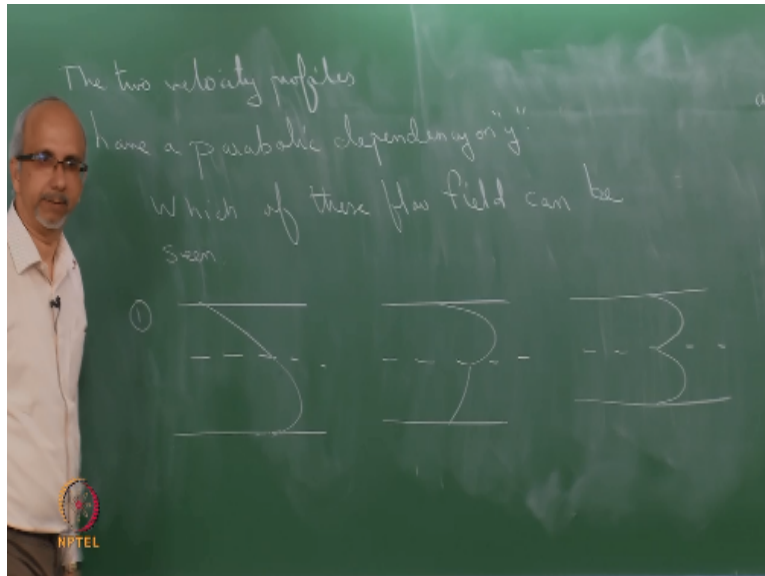 The two velocity profiles
have a parabolic dependency on "y".
Which of these flow field can be
seen.
①
NPTEL